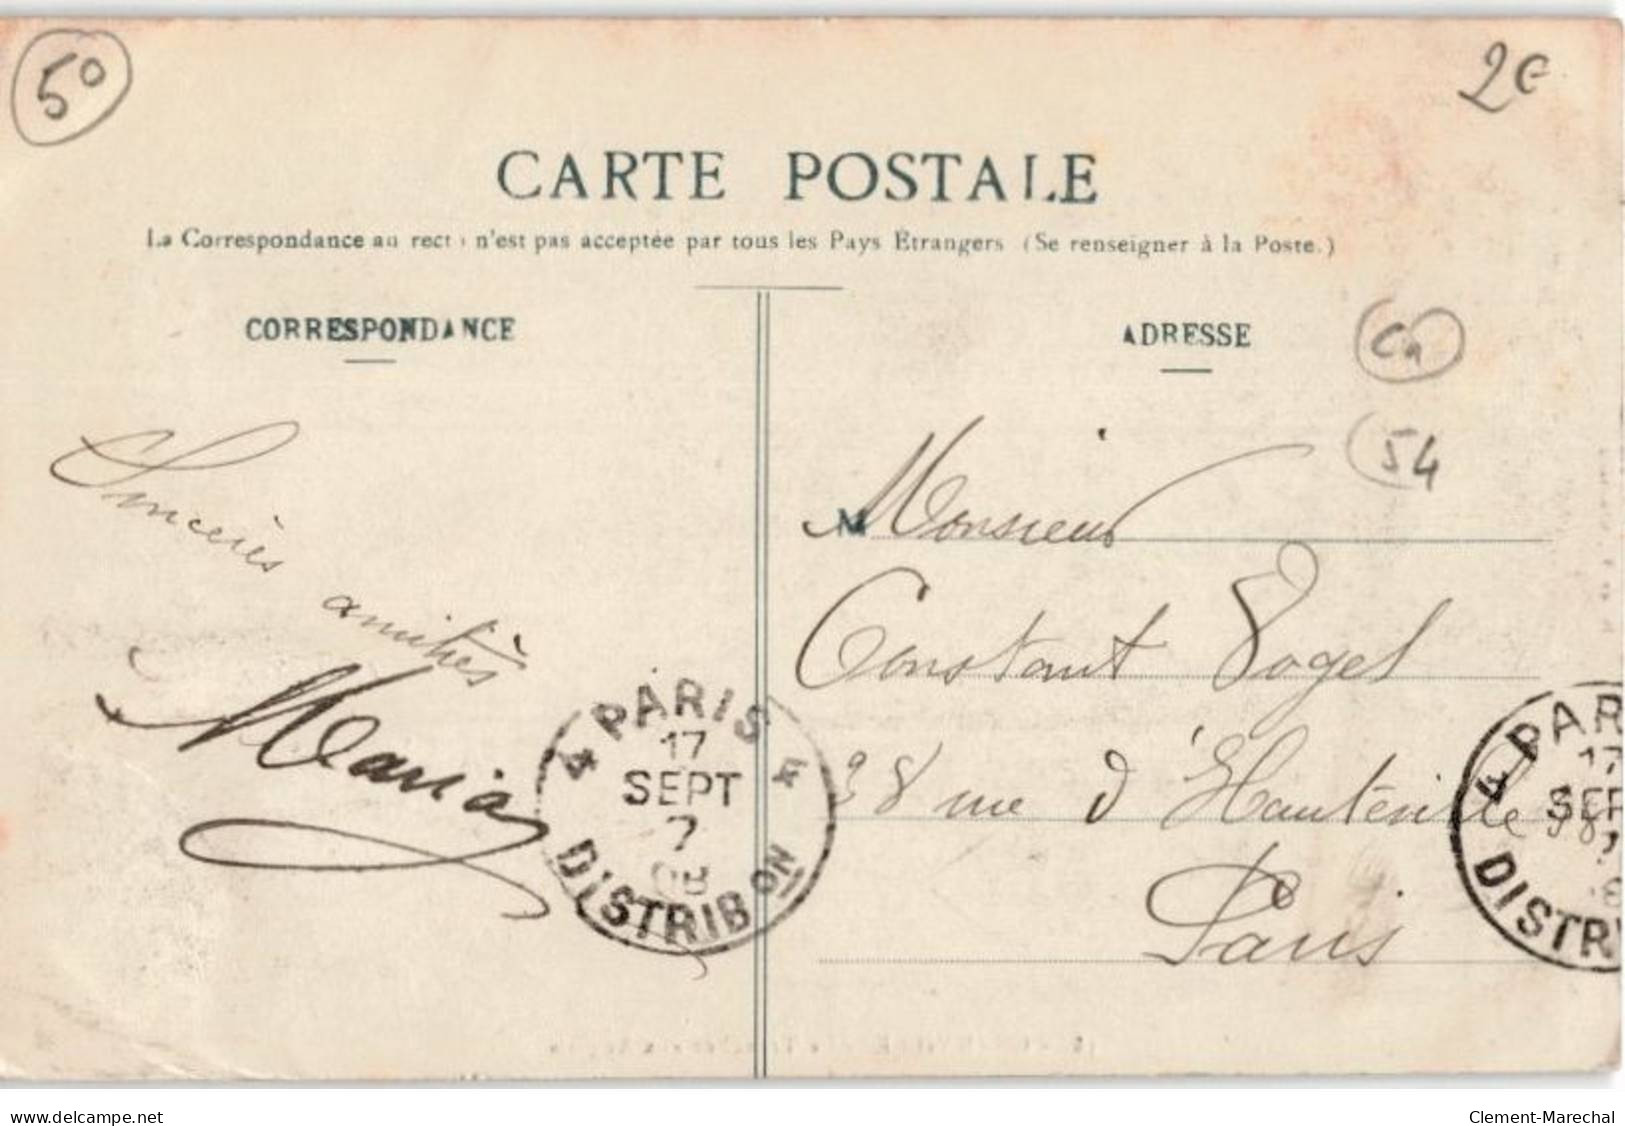 50
2€
CARTE POSTALE
La Correspondance au recto n'est pas acceptée par tous les Pays Etrangers (Se renseigner à la Poste.)
CORRESPONDANCE
ADRESSE
54
Sincères
amitiés
Maria
M Monsieur
Constant Vogel
38 rue d'Hauteville 38
Paris
4 PARIS 4
17
SEPT
7
08
DISTRIBON
4 PAR
17
SEP
7
DISTRI
www.delcampe.net
Clement-Marechal